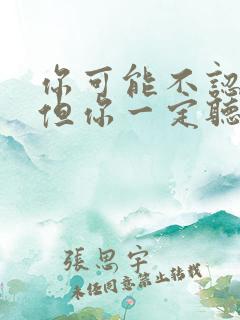 你可能不認
但你一定聽
張思宇
未任同意禁止轉載